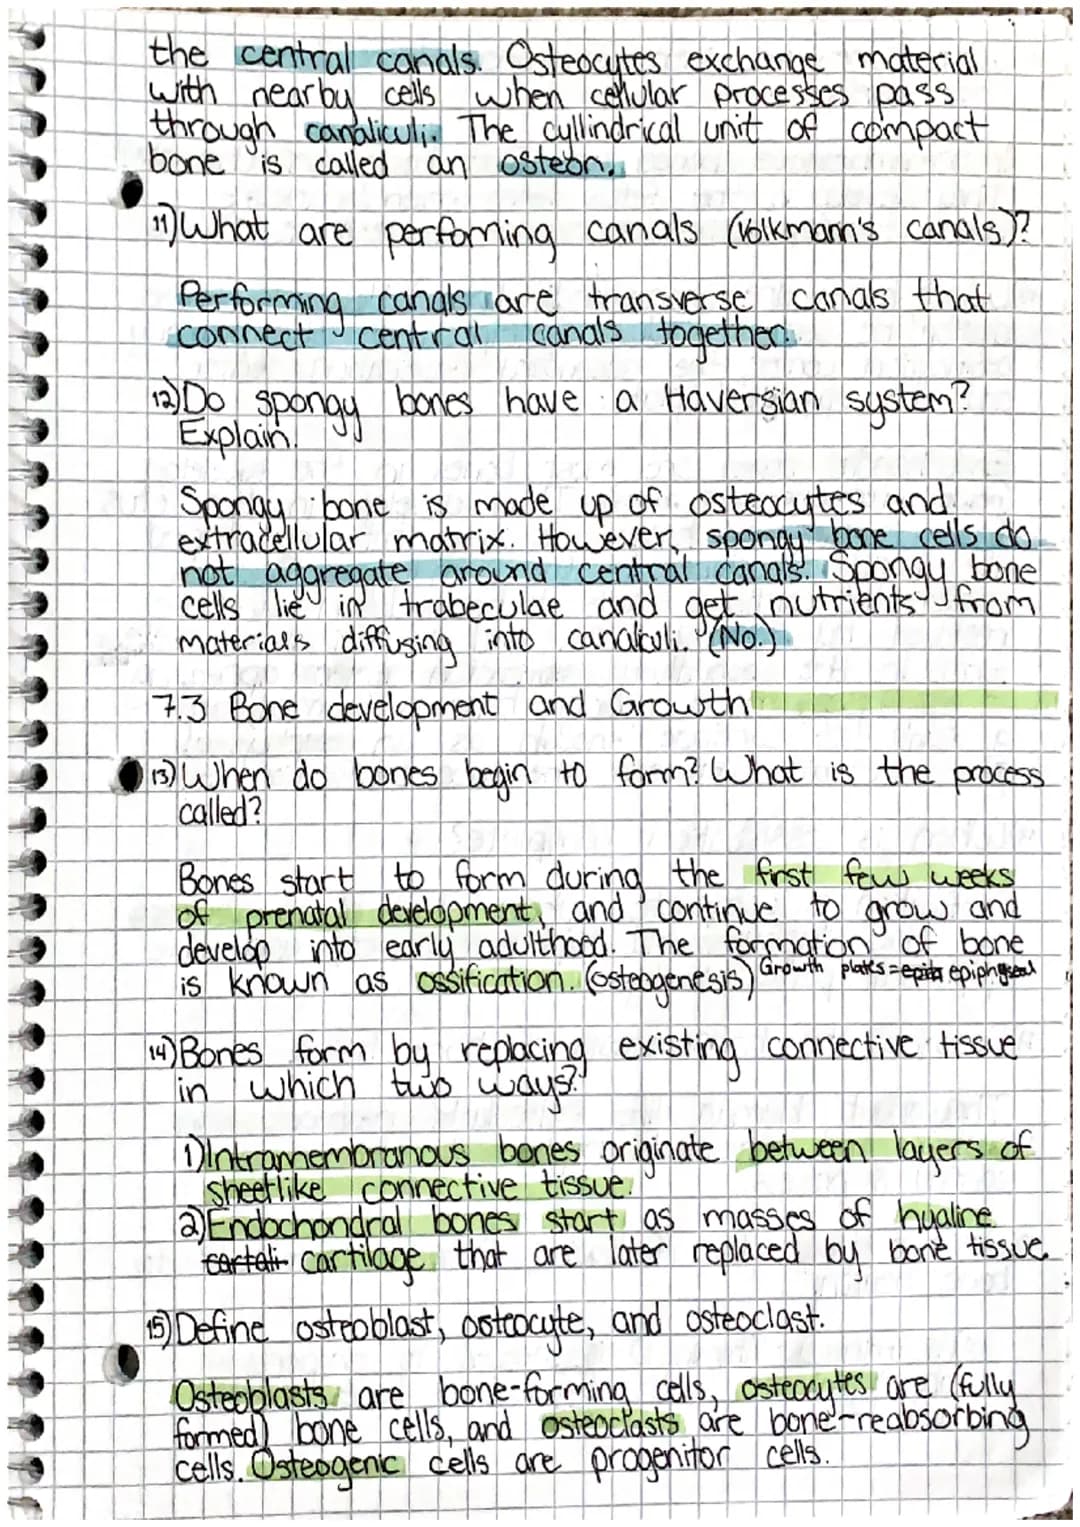 the central canals. Osteocytes exchange material
with nearby cells when cellular processes pass
through canaliculi. The cyllindrical unit of compact
bone is called an osteon.
11) What are perfoming canals (Volkmann's canals)?
Performing canals are transverse canals that
connect central canals together.
12) Do spongy bones have a Haversian system?
Explain.
Spongy bone is made up of osteocytes and
extracellular matrix. However, spongy bone cells do
not aggregate around central canals. Spongy bone
cells lie in trabeculae and get nutrients from
materials diffusing into canaliculi. (No.)
7.3 Bone development and Growth
13) When do bones begin to form? What is the process
called?
Bones start to form during the first few weeks
of prenatal development, and continue to grow and
develop into early adulthood. The formation of bone
is known as ossification. (osteogenesis) Growth plates = epiphyseal
14) Bones form by replacing existing connective tissue
in which two ways?
1) Intramembranous bones originate between layers of
sheetlike connective tissue.
2) Endochondral bones start as masses of hyaline
cartali cartilage that are later replaced by bone tissue.
15) Define osteoblast, osteocyte, and osteoclast.
Osteoblasts are bone-forming cells, osteocytes are (fully
formed) bone cells, and osteoclasts are bone-reabsorbing
cells. Osteogenic cells are progenitor cells.